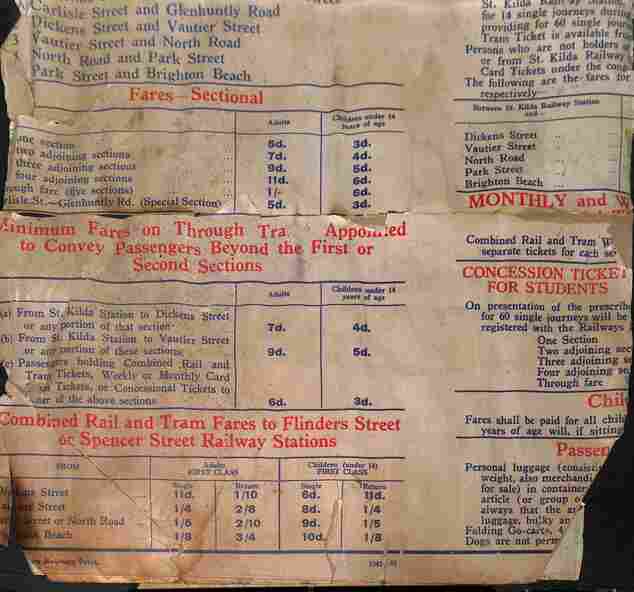 Carlisle Street and Glenhuntly Road
Dickens Street and Vautier Street
3 Vautier Street and North Road
North Road and Park Street
Park Street and Brighton Beach
Fares—Sectional
Adults
Children under 14 years of age
one section 5d. 3d.
two adjoining sections 7d. 4d.
three adjoining sections 9d. 5d.
four adjoining sections 11d. 6d.
ough fare (five sections) 1/- 6d.
rlisle St.—Glenhuntly Rd. (Special Section) 5d. 3d.
Minimum Fares on Through Tra Appointed
to Convey Passengers Beyond the First or
Second Sections
Adults
Children under 14 years of age
(a) From St. Kilda Station to Dickens Street
or any portion of that section 7d. 4d.
(b) From St. Kilda Station to Vautier Street
or any portion of these sections 9d. 5d.
(c) Passengers holding Combined Rail and
Tram Tickets, Weekly or Monthly Card
Tickets, or Concessional Tickets to
of the above sections 6d. 3d.
Combined Rail and Tram Fares to Flinders Street
or Spencer Street Railway Stations
FROM
Adults FIRST CLASS
Children (under 14) FIRST CLASS
Single Return Single Return
Dickens Street 11d. 1/10 6d. 11d.
Street 1/4 2/8 8d. 1/4
Street or North Road 1/5 2/10 9d. 1/5
Beach 1/8 3/4 10d. 1/8
Railways Print.
St. Kilda Railway Station
for 14 single journeys during
providing for 60 single jour
Tram Ticket is available from
Persons who are not holders o
or from St. Kilda Railway
Card Tickets under the con
The following are the fares for
respectively—
Between St. Kilda Railway Station
and—
Dickens Street
Vautier Street
North Road
Park Street
Brighton Beach
MONTHLY and W
Combined Rail and Tram W
separate tickets for each se
CONCESSION TICKET
FOR STUDENTS
On presentation of the prescribe
for 60 single journeys will be
registered with the Railways
One Section
Two adjoining sec
Three adjoining s
Four adjoining se
Through fare
Chil
Fares shall be paid for all child
years of age will, if sitting
Passen
Personal luggage (consisti
weight, also merchandi
for sale) in container
article (or group o
always that the ar
luggage, bulky an
Folding Go-carts,
Dogs are not perm